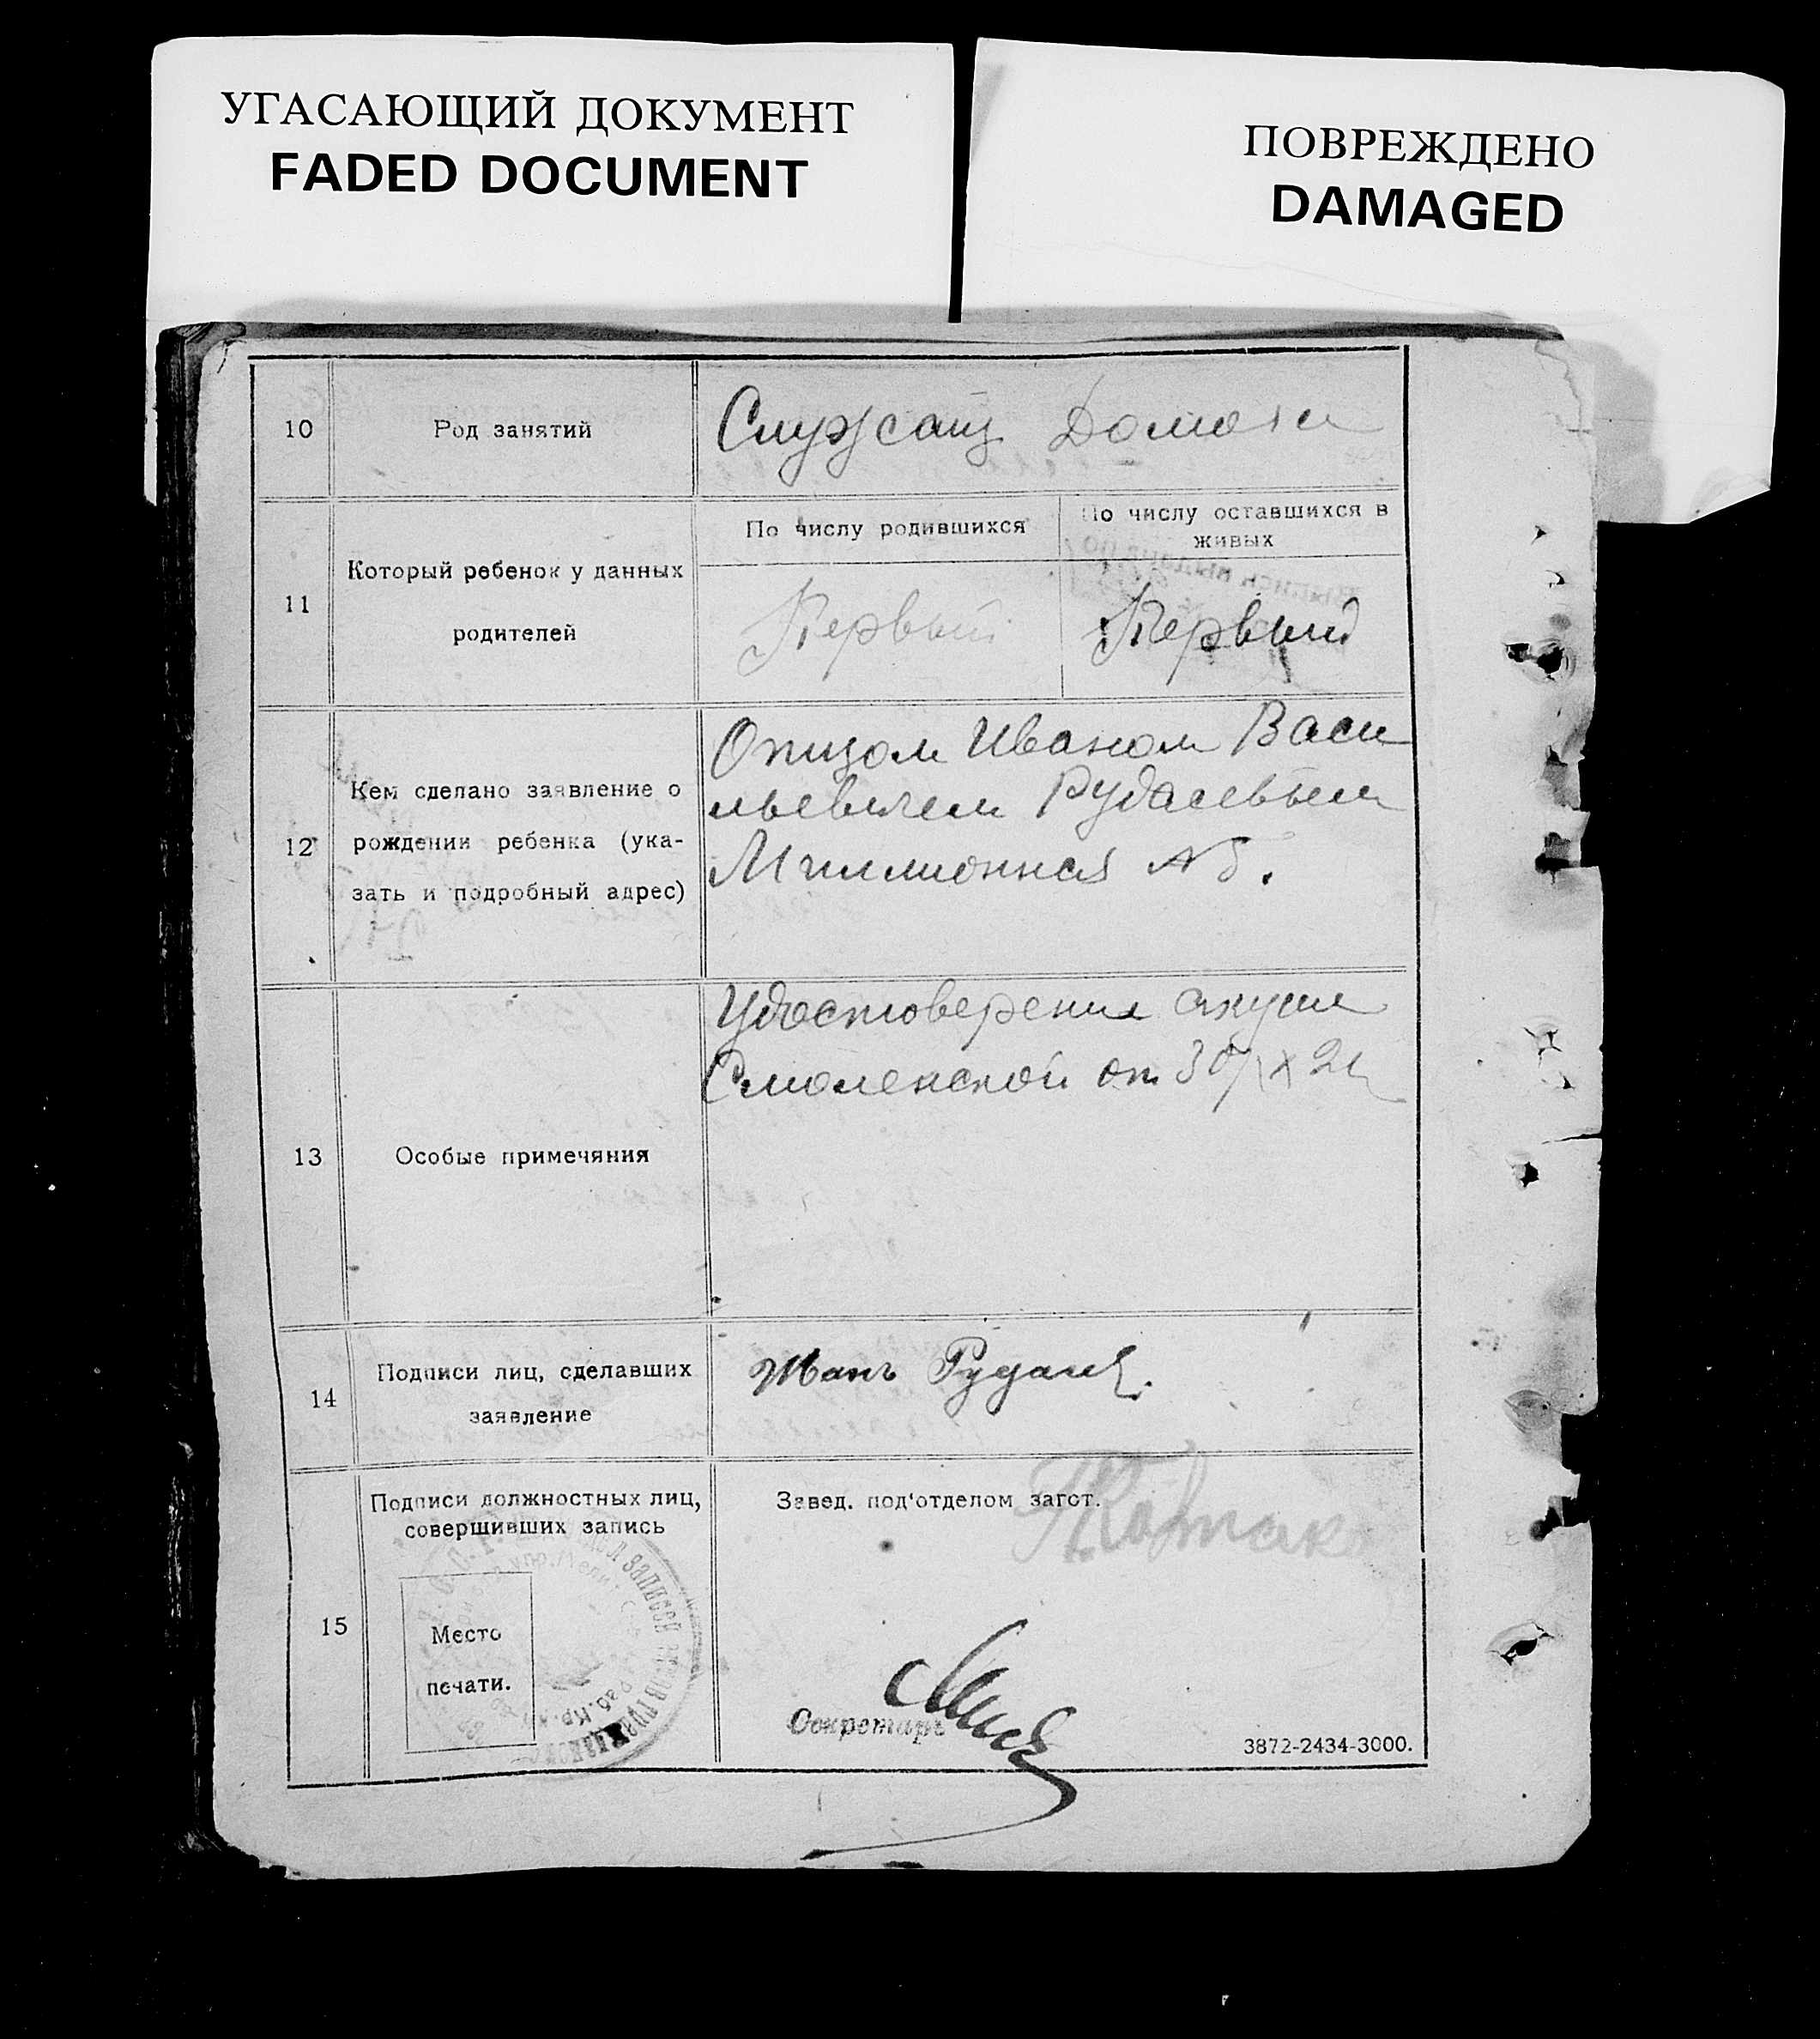 УГАСАЮЩИЙ ДОКУМЕНТ
FADED DOCUMENT
ПОВРЕЖДЕНО
DAMAGED
10 Род занятий Служащ
11 Который ребенок у данных родителей
По числу родившихся
По числу оставшихся в живых
Первый Первый
12 Кем сделано заявление о
рождении ребенка (ука-
зать и подробный адрес)
Отцом Иваном Васи
льевичем
Миллионная №
13 Особые примечяния
Удостоверение акуше
Смоленской от 30/IX 21
14 Подписи лиц, сделавших
заявление
15 Подписи должностных лиц,
совершивших запись
Место
печати.
Завед. под'отделом загст.
Секретарь
3872-2434-3000.